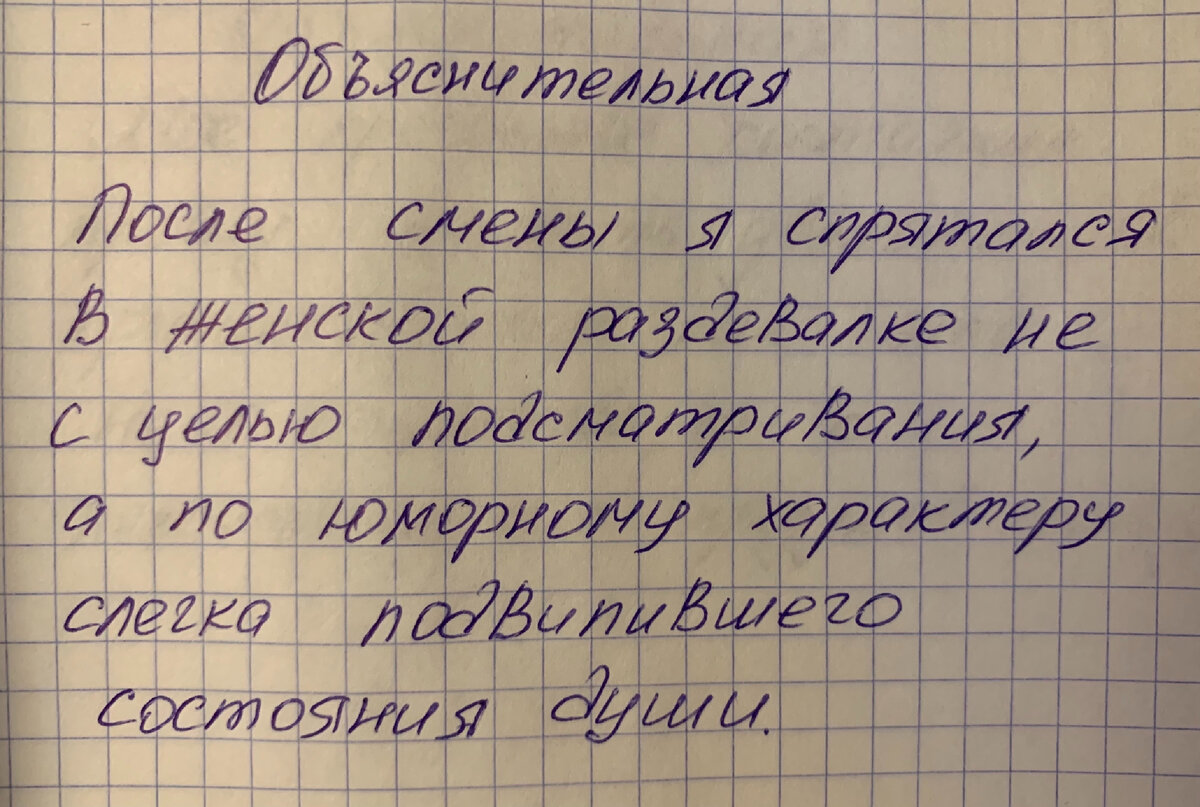 Объяснительная
После смены я спрятался
в женской раздевалке не
с целью подсматривания,
а по юморному характеру
слегка подвипившего
состояния души.